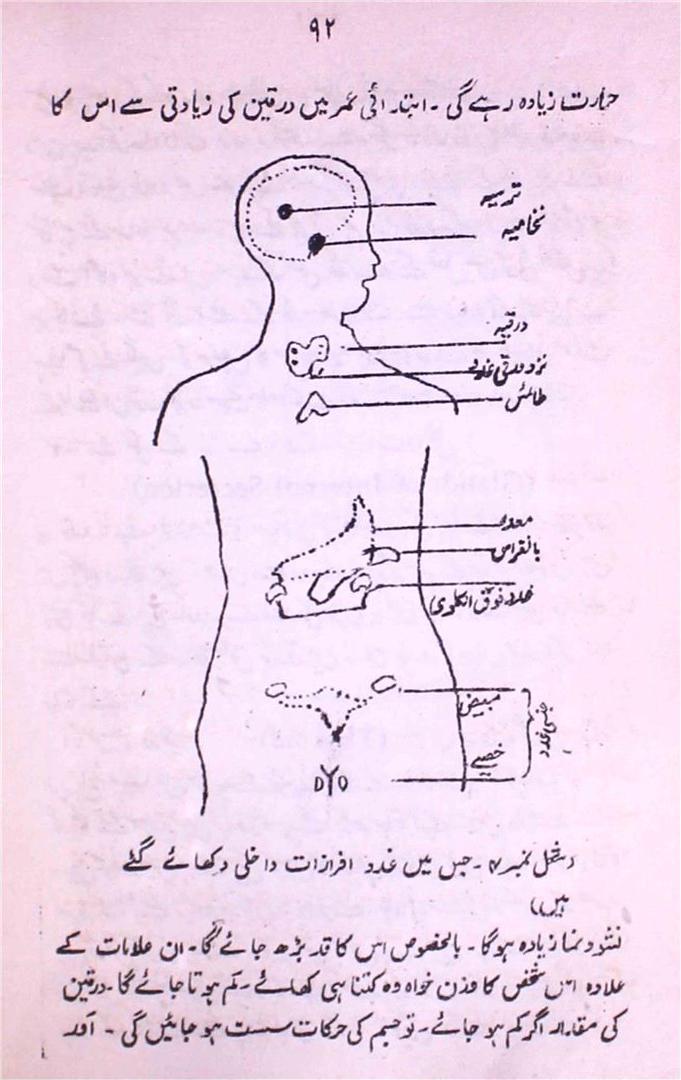 ۹۲
حرارت زیادہ رہے گی ۔ ابتدائی عمر میں درقین کی زیادتی سے اس کا
ترسیہ
نخامیہ
درقیہ
نزد درقی غدود
طائمس
معدہ
بانقراس
غدد فوق الکلوی
مبیض
خصیے
جنسی غدد
(شکل نمبر ۷: جس میں غدود افرازات داخلی دکھائے گئے
ہیں)
نشو و نما زیادہ ہوگا ۔ بالخصوص اس کا قد بڑھ جائے گا ۔ ان علامات کے
علاوہ اس شخص کا وزن خواہ وہ کتنا ہی کھائے ۔ کم ہوتا جائے گا ۔ درقین
کی مقدار اگر کم ہو جائے ۔ تو جسم کی حرکات سست ہو جائیں گی ۔ اور